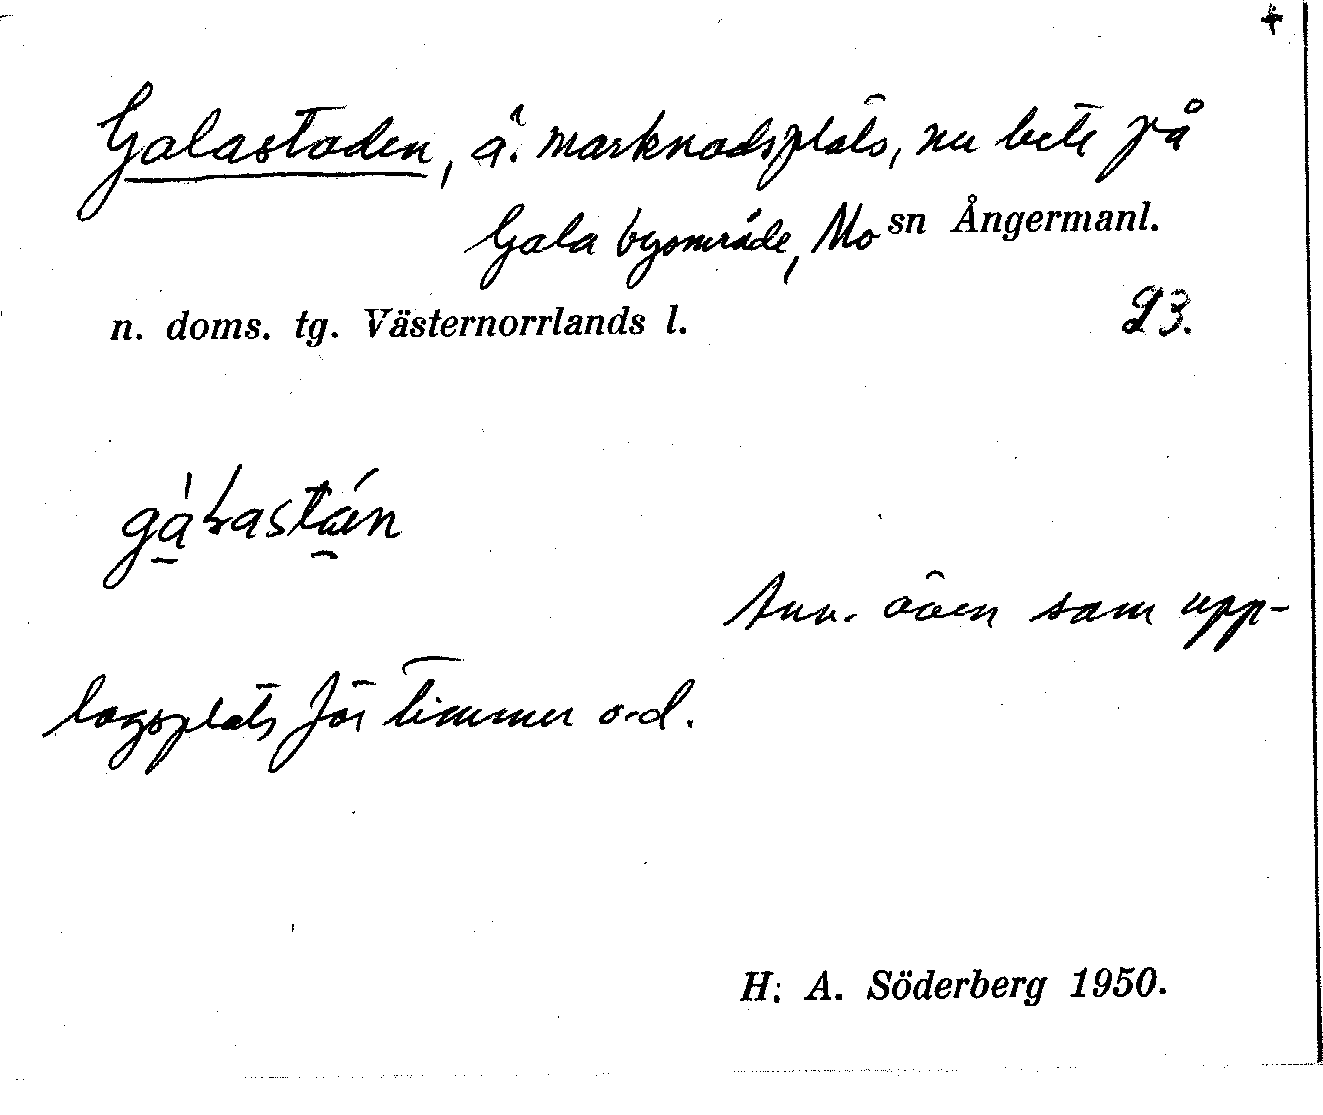 +
Galastaden, ä. marknadsplats, nu bete på
Gala byområde, Mo sn Ångermanl.
n. doms. tg. Västernorrlands l. 93.
Anv. även som upp-
lagsplats för timmer o.d.
H. A. Söderberg 1950.